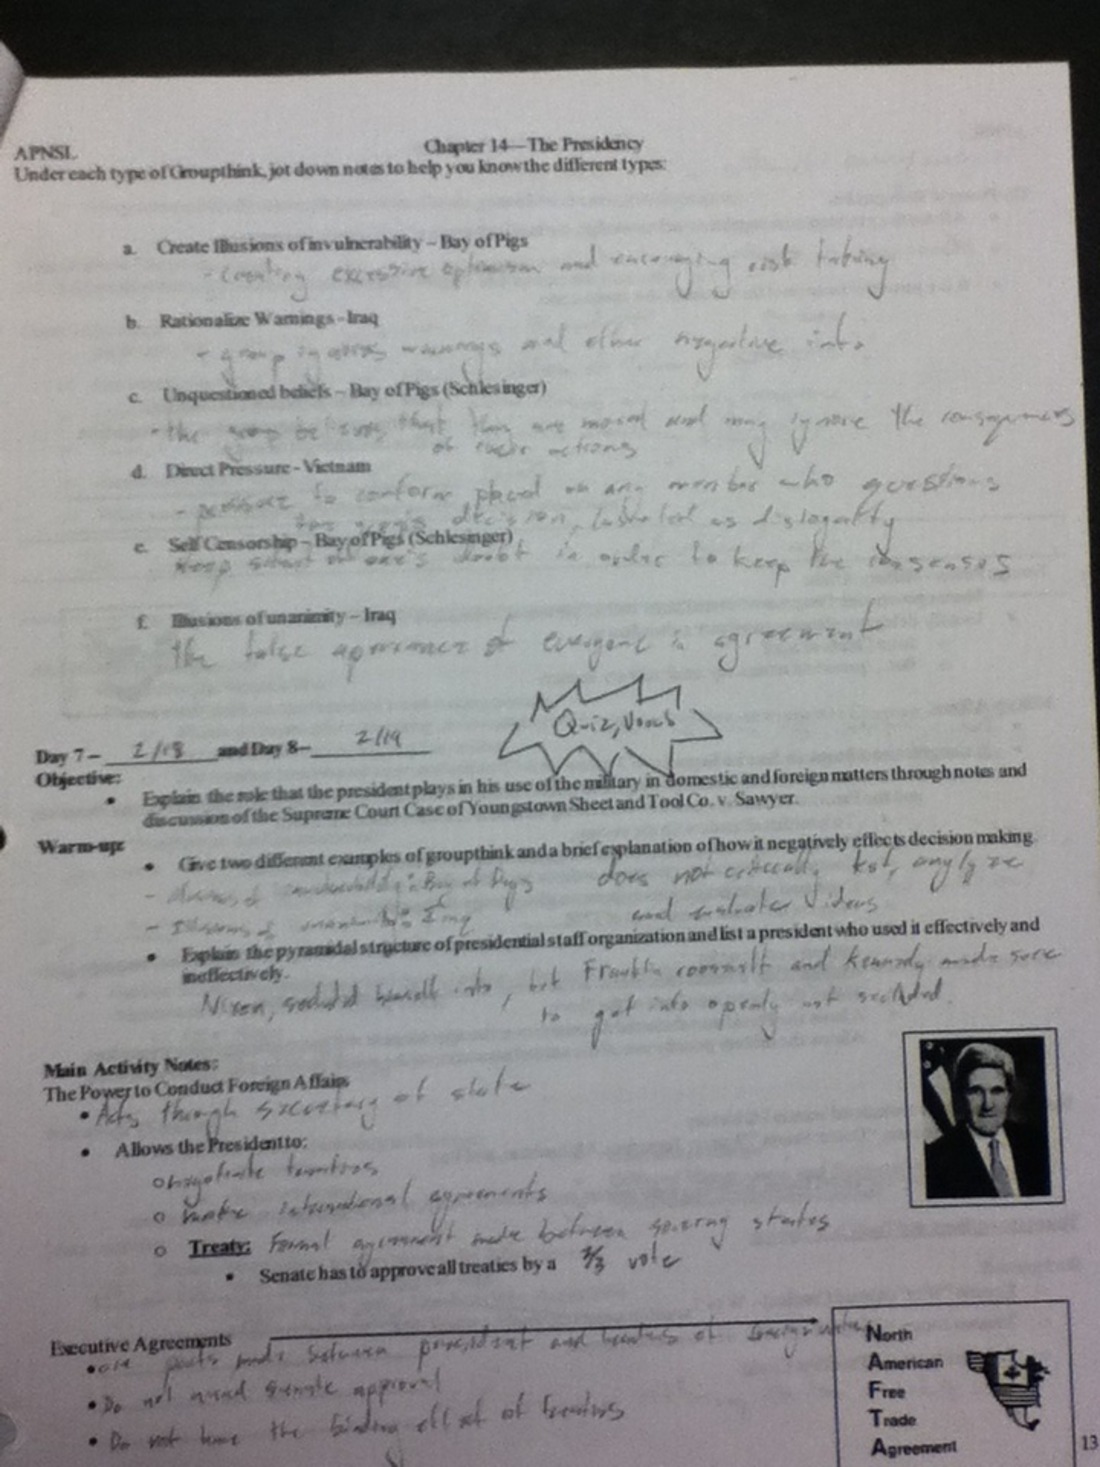 APNSL
Chapter 14—The Presidency
Under each type of Groupthink, jot down notes to help you know the different types:
a. Create Illusions of invulnerability – Bay of Pigs
- Creating excessive optimism and encouraging risk taking
b. Rationalize Warnings - Iraq
- group ignores warnings and other negative info
c. Unquestioned beliefs – Bay of Pigs (Schlesinger)
- the group believes that they are moral and may ignore the consequences
of their actions
d. Direct Pressure - Vietnam
- pressure to conform placed on any member who questions
the group's decision, labeled as disloyalty
e. Self Censorship – Bay of Pigs (Schlesinger)
keep silent of one's doubt in order to keep the consensus
f. Illusions of unanimity – Iraq
The false appearance of everyone in agreement
Quiz, Vocab
Day 7 – 2/18 and Day 8– 2/19
Objective:
• Explain the role that the president plays in his use of the military in domestic and foreign matters through notes and
discussion of the Supreme Court Case of Youngstown Sheet and Tool Co. v. Sawyer.
Warm-up:
• Give two different examples of groupthink and a brief explanation of how it negatively effects decision making.
- Illusions of invulnerability: Bay of Pigs does not critically test, anylyze
- Illusions of unanimity: Iraq and
• Explain the pyramidal structure of presidential staff organization and list a president who used it effectively and
ineffectively.
Nixon, himself info, but Franklin roosevelt and Kennedy made sure
to get info openly not
Main Activity Notes:
The Power to Conduct Foreign Affairs
• Acts through secretary of state
• Allows the President to:
o negotiate
o make international agreements
o Treaty: Formal agreement made between states
• Senate has to approve all treaties by a 2/3 vote
Executive Agreements
• are pacts made between president and heads of
• Do not need senate approval
• Do not have the binding effect of
North
American
Free
Trade
Agreement
13